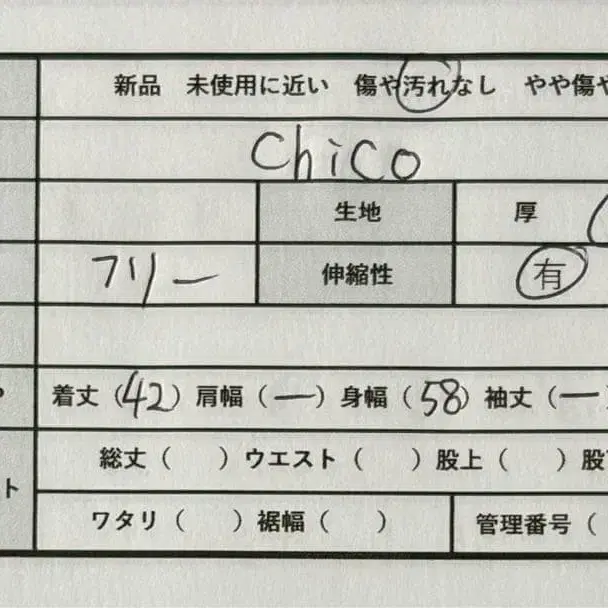 新品 未使用に近い 傷や汚れなし やや傷や
Chico
生地 厚
フリー 伸縮性 有
着丈（42）肩幅（ー）身幅（58）袖丈（ー
総丈（ ）ウエスト（ ）股上（ ）股
ト
ワタリ（ ）裾幅（ ） 管理番号（